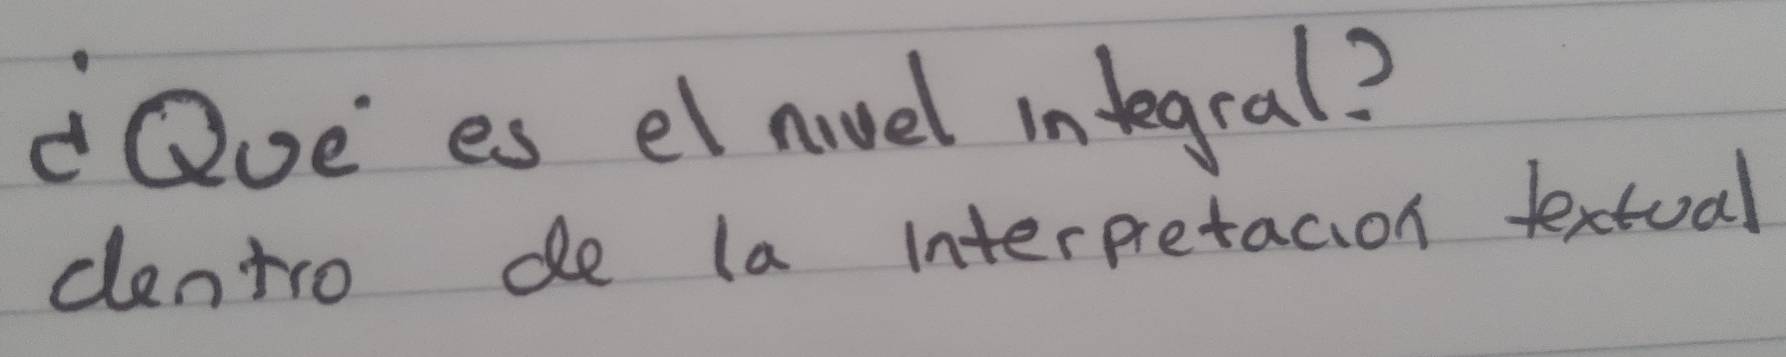 ¿Qué es el nivel integral?
dentro de la interpretacion textual